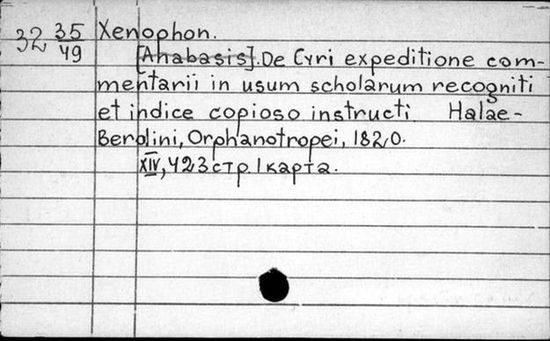 32 35/49 Xenophon.
[Anabasis]. De Cyri expeditione com-
mentarii in usum scholarum recogniti
et indice copioso instructi Halae-
Berolini, Orphanotropei, 1820.
XIV, 423 стр. 1 карта.